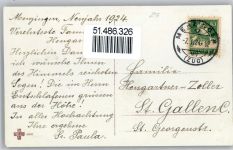 Menzingen, Neujahr 1924.
Verehrteste Fam.
Hengar
Herzlichen Dan
ich wünsche Ihnen
des Himmels reichsten
Segen. Die im Herrn
Entschlafenen grüssen
aus der Höhe.
In aller Hochachtung
Ihre ergebene
Sr. Paula.
51.486.326
(ZUG)
Familie
Hengartner-Zoller
St. Gallen C.
St. Georgenstr.